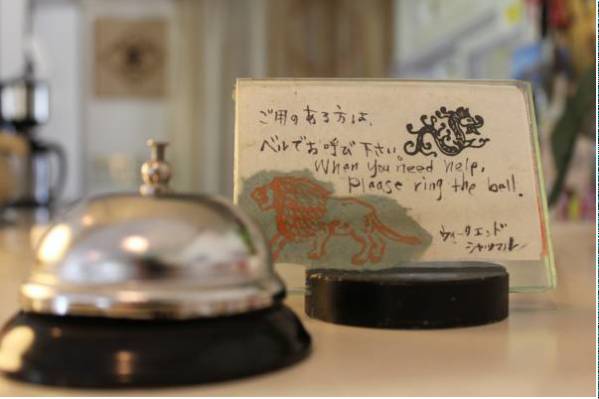 ご用のある方は、
ベルでお呼び下さい。
When you need help,
Please ring the bell.
ウィークエンド